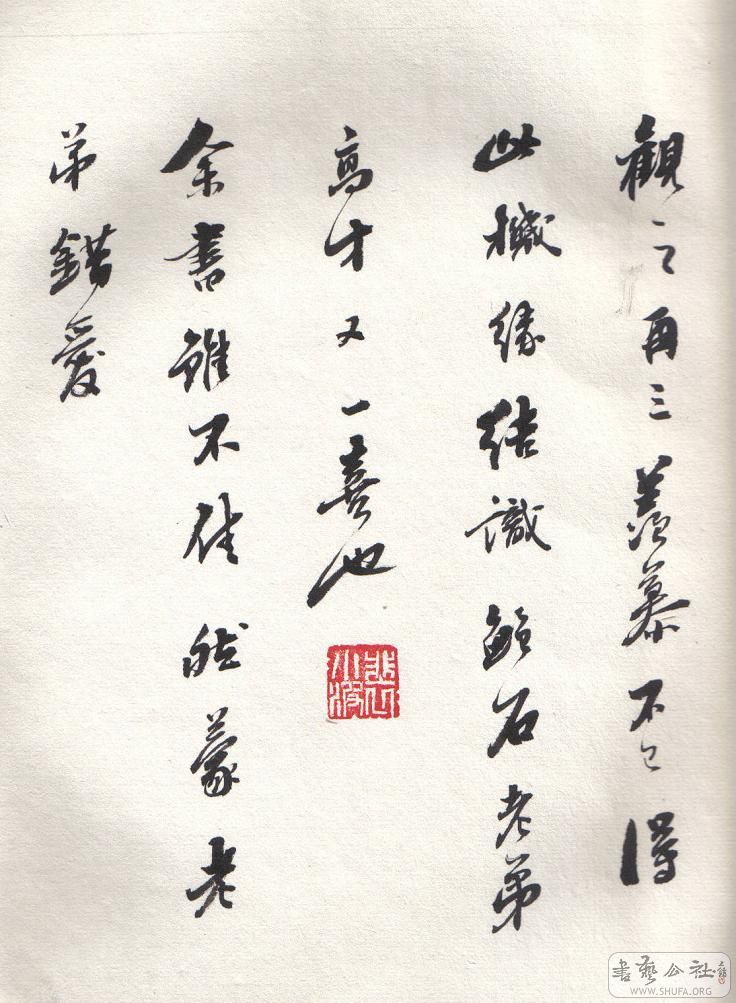 觀之再三羨慕不已得
此機緣結識石老弟
高才又一喜也
余書雖不佳然蒙老
弟錯愛
書藝公社
WWW.SHUFA.ORG